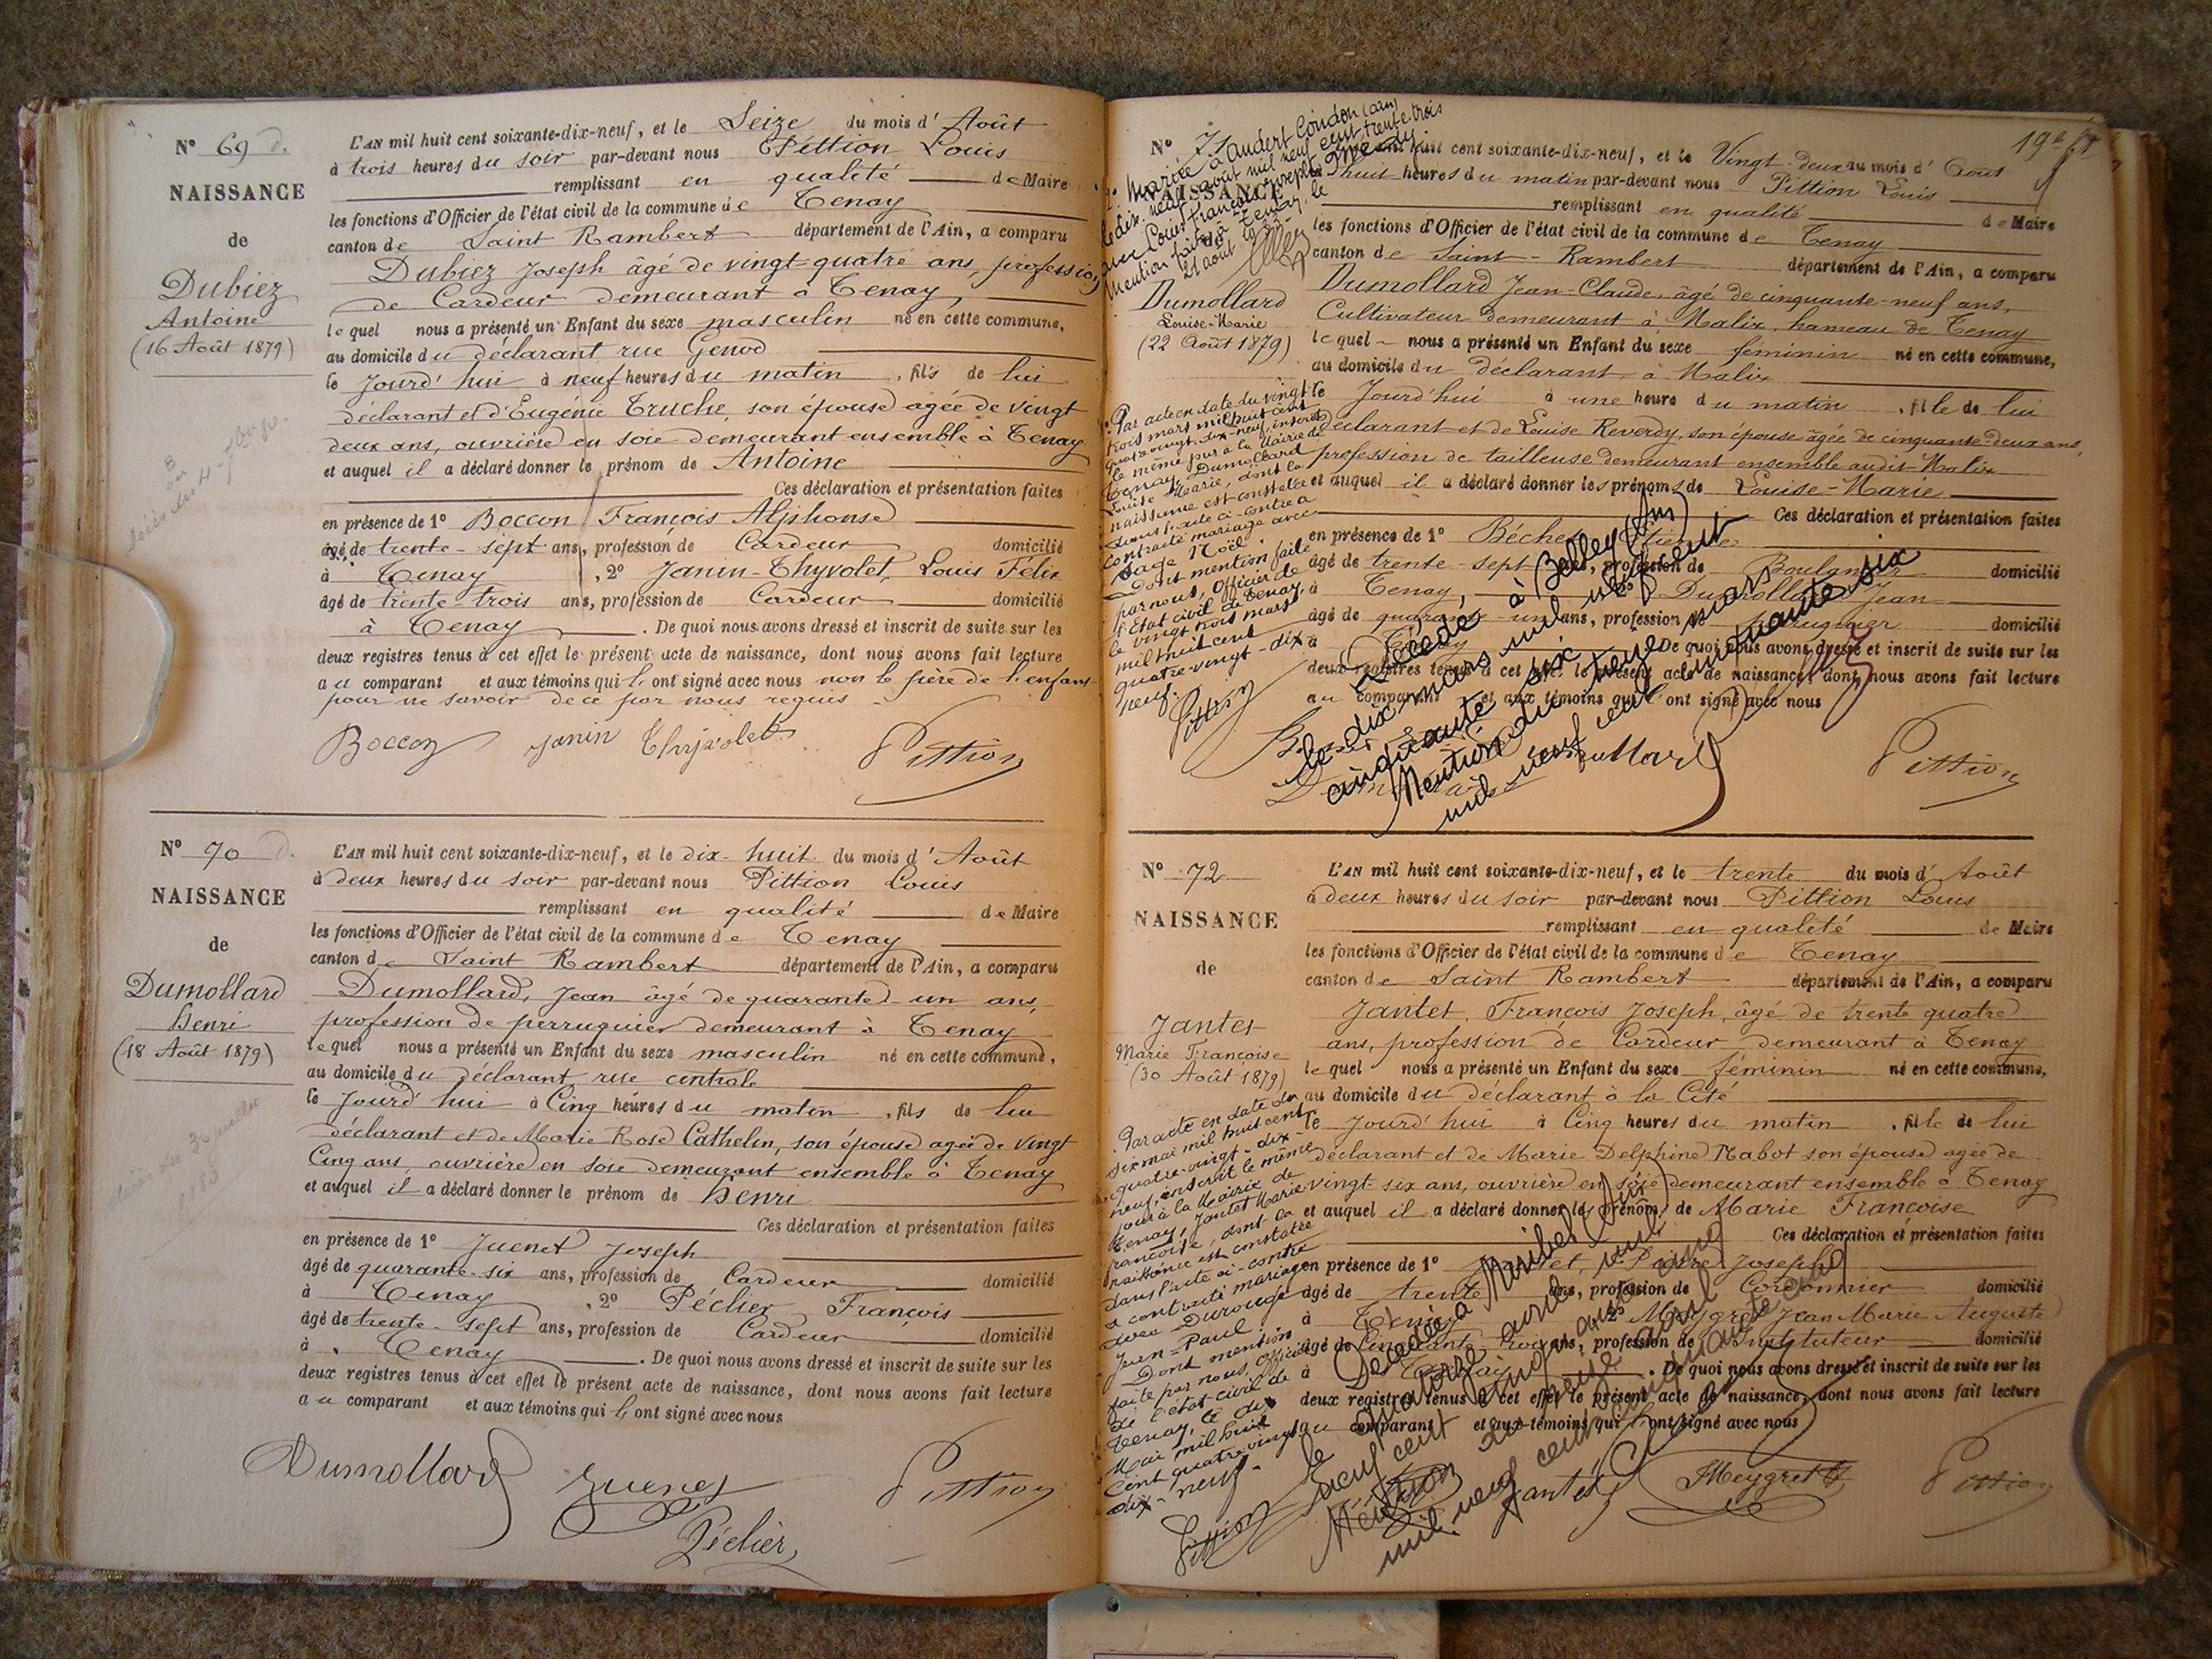 N° 69 d.
NAISSANCE
de
Dubiez
Antoine
(16 Août 1879)
L'AN mil huit cent soixante-dix-neuf, et le Seize du mois d'Août
à trois heures du soir par-devant nous Pittion Louis
remplissant en qualité de Maire
les fonctions d'Officier de l'état civil de la commune de Tenay
canton de Saint Rambert département de l'Ain, a comparu
Dubiez Joseph âgé de vingt-quatre ans, profession
de Cardeur demeurant à Tenay,
lequel nous a présenté un Enfant du sexe masculin né en cette commune,
au domicile du déclarant rue Genod
le jourd'hui à neuf heures du matin, fils de lui
déclarant et d'Eugénie Truche, son épouse agée de vingt
deux ans, ouvrière en soie demeurant ensemble à Tenay
et auquel il a déclaré donner le prénom de Antoine
Ces déclaration et présentation faites
en présence de 1° Boccon François Alphonse
âgé de trente-sept ans, profession de Cardeur domicilié
à Tenay, 2° Janin-Thyvolet, Louis Félix
âgé de trente-trois ans, profession de Cardeur domicilié
à Tenay. De quoi nous avons dressé et inscrit de suite sur les
deux registres tenus à cet effet le présent acte de naissance, dont nous avons fait lecture
au comparant et aux témoins qui l' ont signé avec nous non le père de l'enfant
pour ne savoir de ce par nous requis
Boccon Janin Thyvolet Pittion
N° 70 d.
NAISSANCE
de
Dumollard
Henri
(18 Août 1879)
L'AN mil huit cent soixante-dix-neuf, et le dix-huit du mois d'Août
à deux heures du soir par-devant nous Pittion Louis
remplissant en qualité de Maire
les fonctions d'Officier de l'état civil de la commune de Tenay
canton de Saint Rambert département de l'Ain, a comparu
Dumollard, Jean âgé de quarante-un ans,
profession de perruquier demeurant à Tenay
lequel nous a présenté un Enfant du sexe masculin né en cette commune,
au domicile du déclarant rue centrale
le jourd'hui à Cinq heures du matin, fils de lui
déclarant et de Marie Rose Cathelin, son épouse agée de vingt
Cinq ans, ouvrière en soie demeurant ensemble à Tenay
et auquel il a déclaré donner le prénom de Henri
Ces déclaration et présentation faites
en présence de 1° Juenet Joseph
âgé de quarante-six ans, profession de Cardeur domicilié
à Tenay, 2° Péclier François
âgé de trente-sept ans, profession de Cardeur domicilié
à Tenay. De quoi nous avons dressé et inscrit de suite sur les
deux registres tenus à cet effet le présent acte de naissance, dont nous avons fait lecture
au comparant et aux témoins qui l' ont signé avec nous
Dumollard Juenet Pittion
Péclier
N° 71
NAISSANCE
Dumollard
Louise-Marie
(22 Août 1879)
Par acte en date du vingt-
trois mars mil huit cent
quatre vingt-dix-neuf, inscrit
le même jour à la Mairie de
Tenay, Dumollard
Louise Marie, dont la
naissance est constatée
dans l'acte ci-contre a
contracté mariage avec
Sage Noël.
Dont mention faite
par nous, Officier de
l'Etat civil de Tenay,
le vingt trois mars
mil huit cent
quatre-vingt-dix-
neuf.
Pittion
mil huit cent soixante-dix-neuf, et le Vingt-deux du mois d'Août
huit heures du matin par-devant nous Pittion Louis
remplissant en qualité de Maire
les fonctions d'Officier de l'état civil de la commune de Tenay
canton de Saint-Rambert département de l'Ain, a comparu
Dumollard Jean-Claude, âgé de cinquante-neuf ans,
Cultivateur demeurant à Malix, hameau de Tenay
lequel nous a présenté un Enfant du sexe féminin né en cette commune,
au domicile du déclarant, à Malix
le jourd'hui à une heure du matin, fille de lui
déclarant et de Louise Reverdy, son épouse âgée de cinquante-deux ans,
profession de tailleuse demeurant ensemble audit Malix
et auquel il a déclaré donner les prénoms de Louise-Marie
Ces déclaration et présentation faites
en présence de 1°
âgé de trente-sept ans, profession de Boulanger domicilié
à Tenay, 2° Dumollard Jean
âgé de quarante-un ans, profession de perruquier domicilié
à Tenay. De quoi nous avons dressé et inscrit de suite sur les
deux registres tenus à cet effet le présent acte de naissance, dont nous avons fait lecture
au comparant et aux témoins qui l' ont signé avec nous
Décédée à Belley (Ain)
le dix mars mil neuf cent
cinquante six
Mention du treize mars
mil neuf cent cinquante six
Pittion
N° 72
NAISSANCE
de
Jantet
Marie Françoise
(30 Août 1879)
Par acte en date du
six mai mil huit cent
quatre-vingt-dix-
neuf, inscrit le même
jour à la Mairie de
Tenay, Jantet Marie
Françoise, dont la
naissance est constatée
dans l'acte ci-contre
a contracté mariage
avec Durouge
Jean-Paul.
Dont mention
faite par nous, Officier
de l'état civil de
Tenay, le dix
Mai mil huit
cent quatre vingt
dix-neuf.
Pittion
L'AN mil huit cent soixante-dix-neuf, et le trente du mois d'Août
à deux heures du soir par-devant nous Pittion Louis
remplissant en qualité de Maire
les fonctions d'Officier de l'état civil de la commune de Tenay
canton de Saint Rambert département de l'Ain, a comparu
Jantet, François Joseph, âgé de trente quatre
ans, profession de Cardeur demeurant à Tenay
lequel nous a présenté un Enfant du sexe féminin né en cette commune,
au domicile du déclarant à la Cité
le jourd'hui à Cinq heures du matin, fille de lui
déclarant et de Marie Delphine Rabot son épouse agée de
vingt six ans, ouvrière en soie demeurant ensemble à Tenay
et auquel il a déclaré donner les prénoms de Marie Françoise
Ces déclaration et présentation faites
en présence de 1° Jantet, Pierre Joseph
âgé de trente ans, profession de Cordonnier domicilié
à Tenay, 2° Meygret Jean Marie Auguste
âgé de Cinquante trois ans, profession de Instituteur domicilié
à Tenay. De quoi nous avons dressé et inscrit de suite sur les
deux registres tenus à cet effet le présent acte de naissance, dont nous avons fait lecture
au comparant et aux témoins qui l' ont signé avec nous
Décédée à Miribel (Ain)
le quatorze août mil
neuf cent cinquante cinq
Mention du
mil neuf cent cinquante cinq
Jantet Meygret Pittion